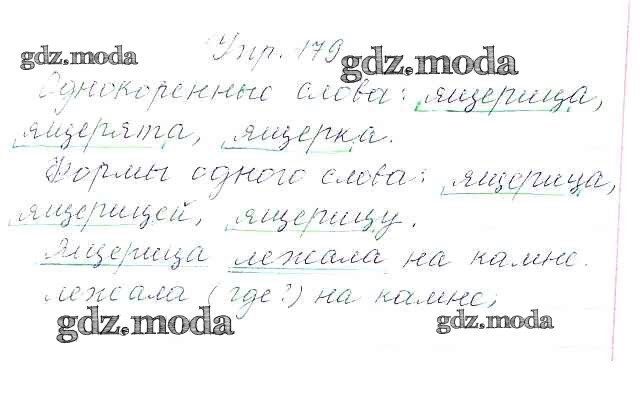 gdz.moda Упр. 179 gdz.moda
Однокоренные слова: ящерица,
ящерята, ящерка.
Формы одного слова: ящерица,
ящерицей, ящерицу.
Ящерица лежала на камне.
лежала (где?) на камне;
gdz.moda gdz.moda